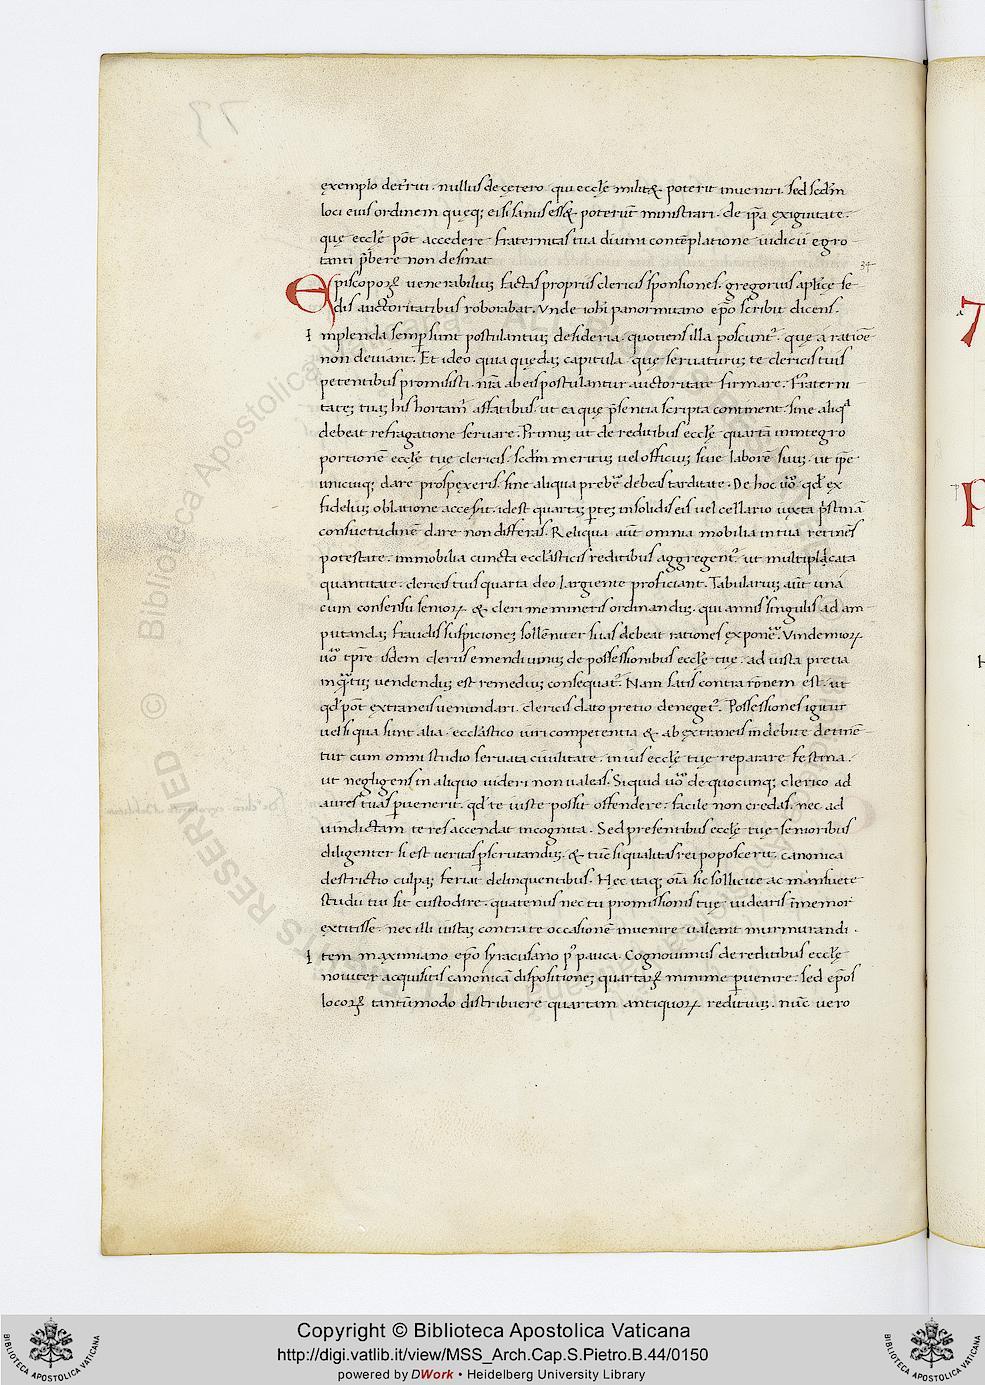 exemplo det'riti · nullus de cętero qui eccl'ę milit& · poterit inveniri · sed scd'm
loci eius ordinem quęq; ei si sanus ess& poterun̄t ministrari · de ip̄a exiguitate ·
quę eccl'ę pōt accedere · fraternitas tua divini contēplatione iudicii egro
tanti p̄bere non desinat
34
Episcopoꝝ venerabiliuꝫ factas propriis clericis sponsiones · gregorius aplicę se
dis auctoritatibus roborabat · Unde ioh'i panormitano ep̄o scribit dicens ·
Implenda semp sunt postulantiuꝫ desideria · quotiens illa poscunt' · quę a ratioē
non deviant · Et ideo quia quędaꝫ capitula · quę servaturuꝫ te clericis tuis
petentibus promisisti · n̄ra ab eis postulantur auctoritate firmare · Fraterni
tateꝫ tuaꝫ his hortam' affatibus · ut ea quę p̄sentia scripta continent · sine aliqa
debeat refragatione servare · Primuꝫ ut de reditibus eccl'ę quartā inintegro
portionē eccl'ę tuę clericis · scd'm merituꝫ vel officiuꝫ sive laborē suuꝫ · ut ip̄e
unicuiq; dare prospexeris · sine aliqua prebe' debeas tarditate · De hoc v̊o · qd' ex
fidelium oblatione accesit · idest quartaꝫ p̱teꝫ in solidis eis vel cellario iuxta p'stinā
consuetudinē dare non differas · Reliqua aūt omnia mobilia in tua retineŝ
potestate · immobilia cuncta eccl'asticis reditibus aggregent' · ut multiplicata
quantitate · clericis tuis quarta deo largiente proficiant · Tabulariuꝫ aūt unā
cum consensu senioꝝ & cleri memineris ordinanduꝫ · qui annis singulis ad am
putandaꝫ fraudis suspicioneꝫ sollēniter suas debeat rationes expone' · Vindemioꝝ
v̊o tp̄re isdem clerus emendi vinuꝫ de possessionibus eccl'ę tuę · ad iusta pretia
inqa'tuꝫ vendenduꝫ est remediuꝫ consequat' · Nam satis contra rōnem est · ut
qd' pōt extraneis venundari · clericis dato pretio deneget' · Possessiones igitur
vel si qua sunt alia · eccl'astico iuri competentia & ab extraneis indebite detinē
tur cum omni studio servata civilitate · in ius eccl'ę tuę reparare festina ·
ut negligens in aliquo videri non valeas · Si quid v̊o de quocunq; clerico ad
aures tuas p̱venerit · qd' te iuste possit offendere · facile non credas · nec ad
vindictam te res accendat incognita · Sed presentibus eccl'ę tuę senioribus
diligenter si est veritas p̱scrutanduꝫ · & tūc si qualitas rei poposcerit · canonica
destrictio culpaꝫ feriat delinquentibus · Hęc itaq; oīa sic sollicite ac mansuete
studii tui sit custodire · quatenus nec tu promissionis tuę videaris īmemor
extitisse · nec illi iustaꝫ contra te occasionē invenire valeant murmurandi ·
Item maximiano ep̄o syracusano p' pauca · Cognovimus de reditibus eccl'ę
noviter acquisitis canonicā dispositioneꝫ quartaꝝ minime p̱venire · sed ep̄os
locoꝝ tantūmodo distribuere quartam antiquoꝝ redituuꝫ · nūc vero
Copyright © Biblioteca Apostolica Vaticana
http://digi.vatlib.it/view/MSS_Arch.Cap.S.Pietro.B.44/0150
powered by DWork • Heidelberg University Library